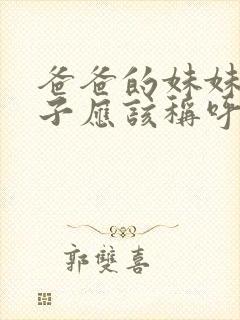 爸爸的妹妹
子应该称呼
郭雙喜